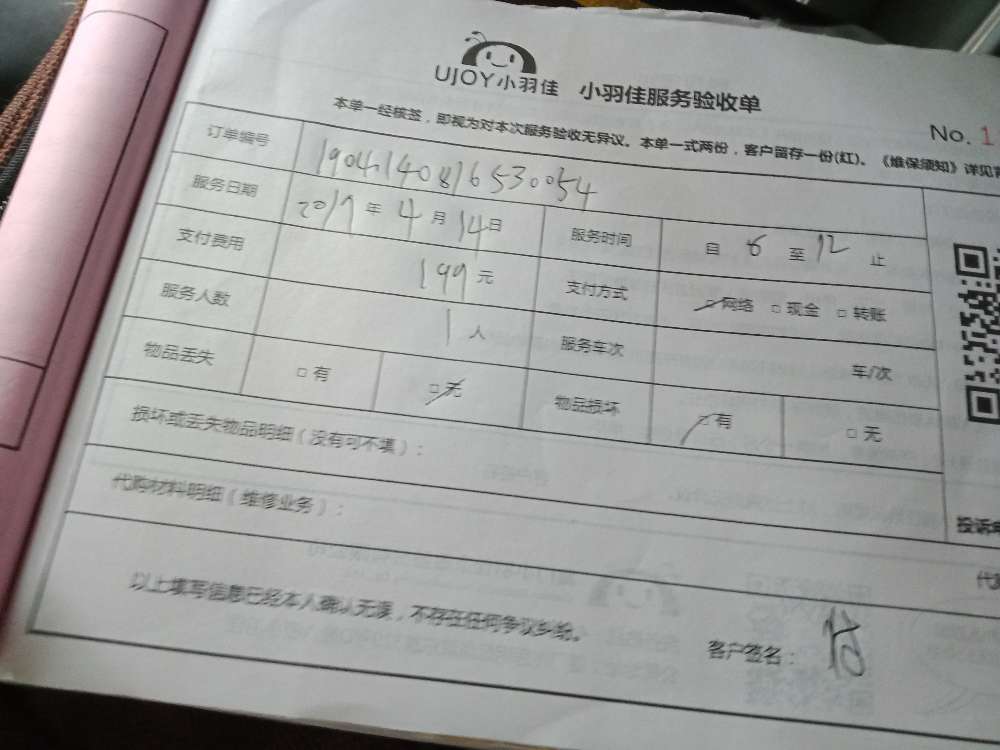 UJOY小羽佳 小羽佳服务验收单
No. 1
本单一经核签，即视为对本次服务验收无异议。本单一式两份，客户留存一份(红)。《维保须知》详见背
订单编号 1904140816530054
服务日期 2019年4月14日 服务时间 自 8 至 12 止
支付费用 199元 支付方式 □网络 □现金 □转账
服务人数 1人 服务车次 车/次
物品丢失 □有 □无 物品损坏 □有 □无
损坏或丢失物品明细（没有可不填）：
代购材料明细（维修业务）：
投诉电
代购
以上填写信息已经本人确认无误，不存在任何争议纠纷。
客户签名：